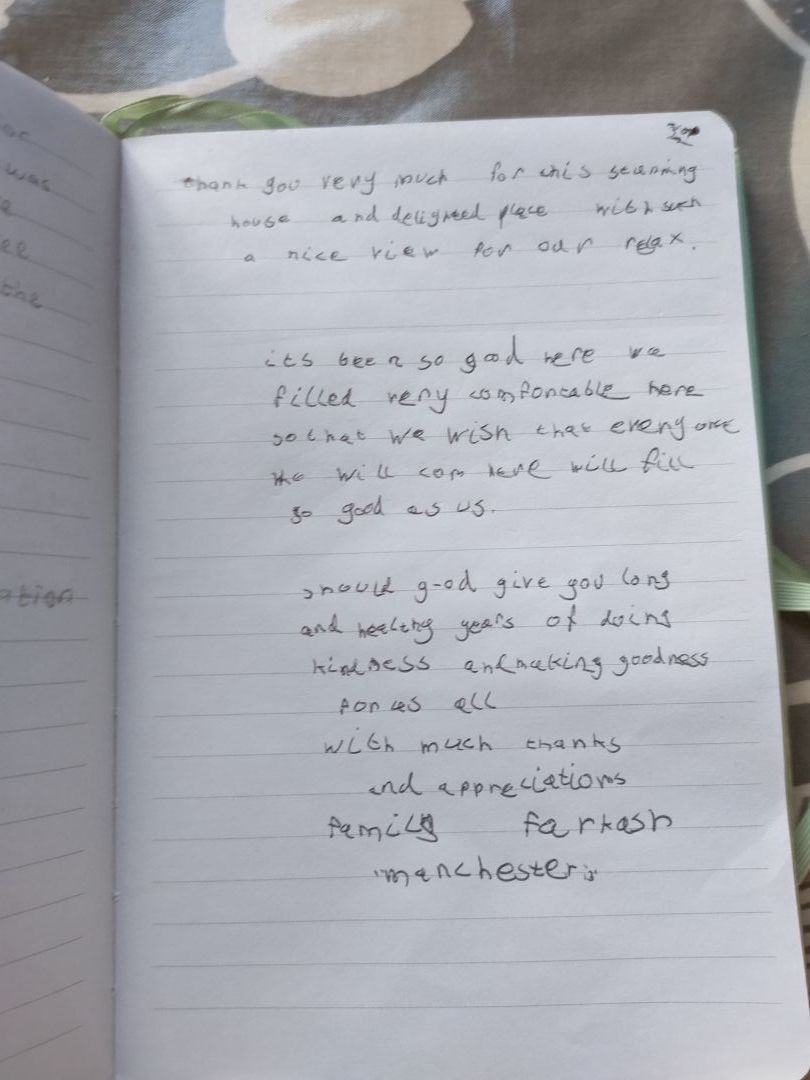 was
the
ation
thank you very much for this stunning
house and deligheed place with such
a nice view for our relax.
its been so good here we
filled very comfortable here
so that we wish that everyone
who will com here will fill
so good as us.
should g-od give you long
and healthy years of doing
kindness and making goodness
for us all
with much thanks
and appreciations
family farkash
"manchester"